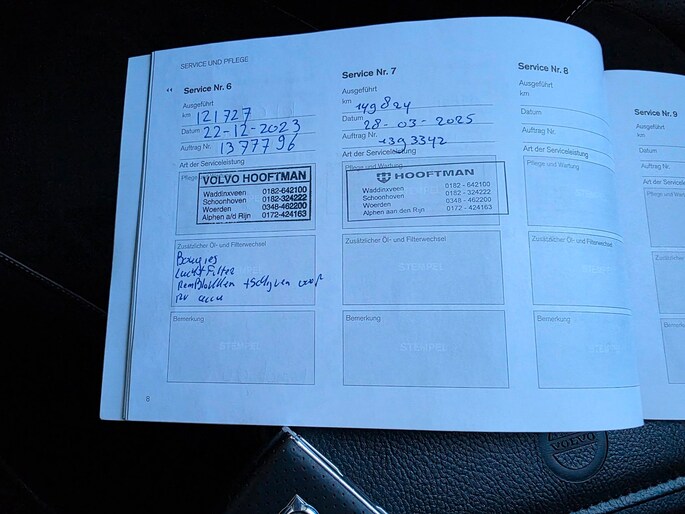 SERVICE UND PFLEGE
Service Nr. 6
Ausgeführt
km 121727
Datum 22-12-2023
Auftrag Nr. 1377796
Art der Serviceleistung
Pflege
VOLVO HOOFTMAN
Waddinxveen 0182-642100
Schoonhoven 0182-324222
Woerden 0348-462200
Alphen a/d Rijn 0172-424163
Zusätzlicher Öl- und Filterwechsel
Bougies
Luchtfilter
Remblokken + Schijven voor
Bemerkung
STEMPEL
8
Service Nr. 7
Ausgeführt
km 149824
Datum 28-03-2025
Auftrag Nr. 1393342
Art der Serviceleistung
Pflege und Wartung
HOOFTMAN
Waddinxveen 0182 - 642100
Schoonhoven 0182 - 324222
Woerden 0348 - 462200
Alphen aan den Rijn 0172 - 424163
Zusätzlicher Öl- und Filterwechsel
STEMPEL
Bemerkung
STEMPEL
Service Nr. 8
Ausgeführt
km
Datum
Auftrag Nr.
Art der Serviceleistung
Pflege und Wartung
Zusätzlicher Öl- und Filterwechsel
Bemerkung
Service Nr. 9
Ausgeführt
km
Datum
Auftrag Nr.
Art der Serviceleistung
Pflege und Wartung
Bemerkung
VOLVO